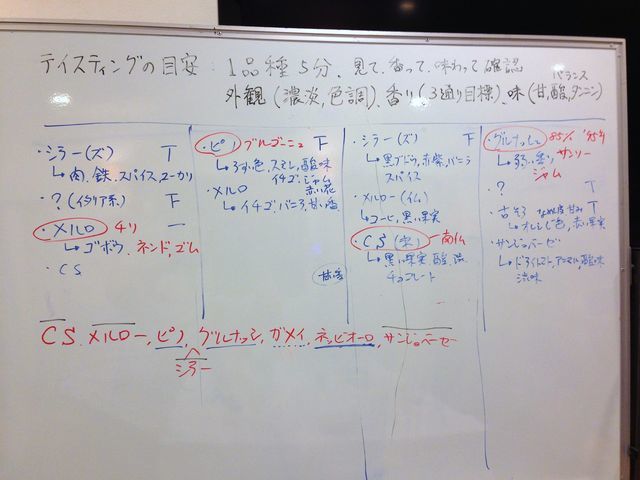 テイスティングの目安： 1品種5分、見て、香って、味わって確認
バランス
外観（濃淡、色調）、香り（3通り目標）、味（甘,酸,タンニン）
・シラー（ズ） T
↳肉、鉄、スパイス、ユーカリ
・？（イタリア系） F
・メルロ チリ ー
↳ゴボウ、ネンド、ゴム
・CS
・ピノ ブルゴーニュ F
↳うすい色、スミレ、酸味
イチゴ・ジャム
・メルロ 赤い花
↳イチゴ、バニラ、甘い香
・シラー（ズ） F
↳黒ブドウ、赤紫、バニラ
スパイス
・メルロー（仏）
↳コーヒー、黒い果実
・CS 南仏
↳黒い果実、酸、渋
チョコレート
・グルナッシュ 85% '95年
↳弱い香り サンソー
ジャム
・？
なめし皮 甘み T
↳オレンジ色、赤い果実
・サンジョベーゼ
↳ドライトマト、アニマル、酸味
渋味
CS、メルロー、ピノ、グルナッシュ、ガメイ、ネッビオーロ、サンジョベーゼ
シラー